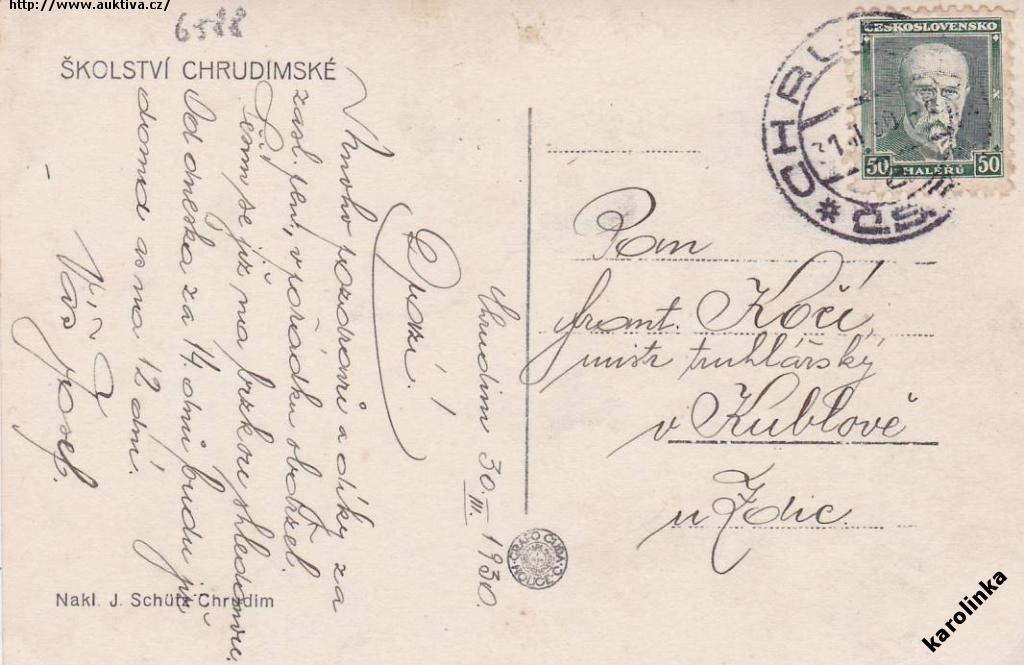 http://www.auktiva.cz/
6588
ŠKOLSTVÍ CHRUDIMSKÉ
Chrudim 30. III. 1930.
Drazí!
Mnoho pozdravů a díky za
zasl. peníz, v pořádku obdržel.
Těším se již na brzkou shledanou.
Od dneška za 14. dnů budu již
doma as na 12 dní.
Váš Josef.
Nakl. J. Schütz Chrudim
GRAFO ČUDA HOLICE Č.
CHRUDIM
ČS
ČESKOSLOVENSKO
50 HALÉŘŮ 50
Pan
frant. Kočí,
mistr truhlářský
v Kublově
u Zdic.
karolinka